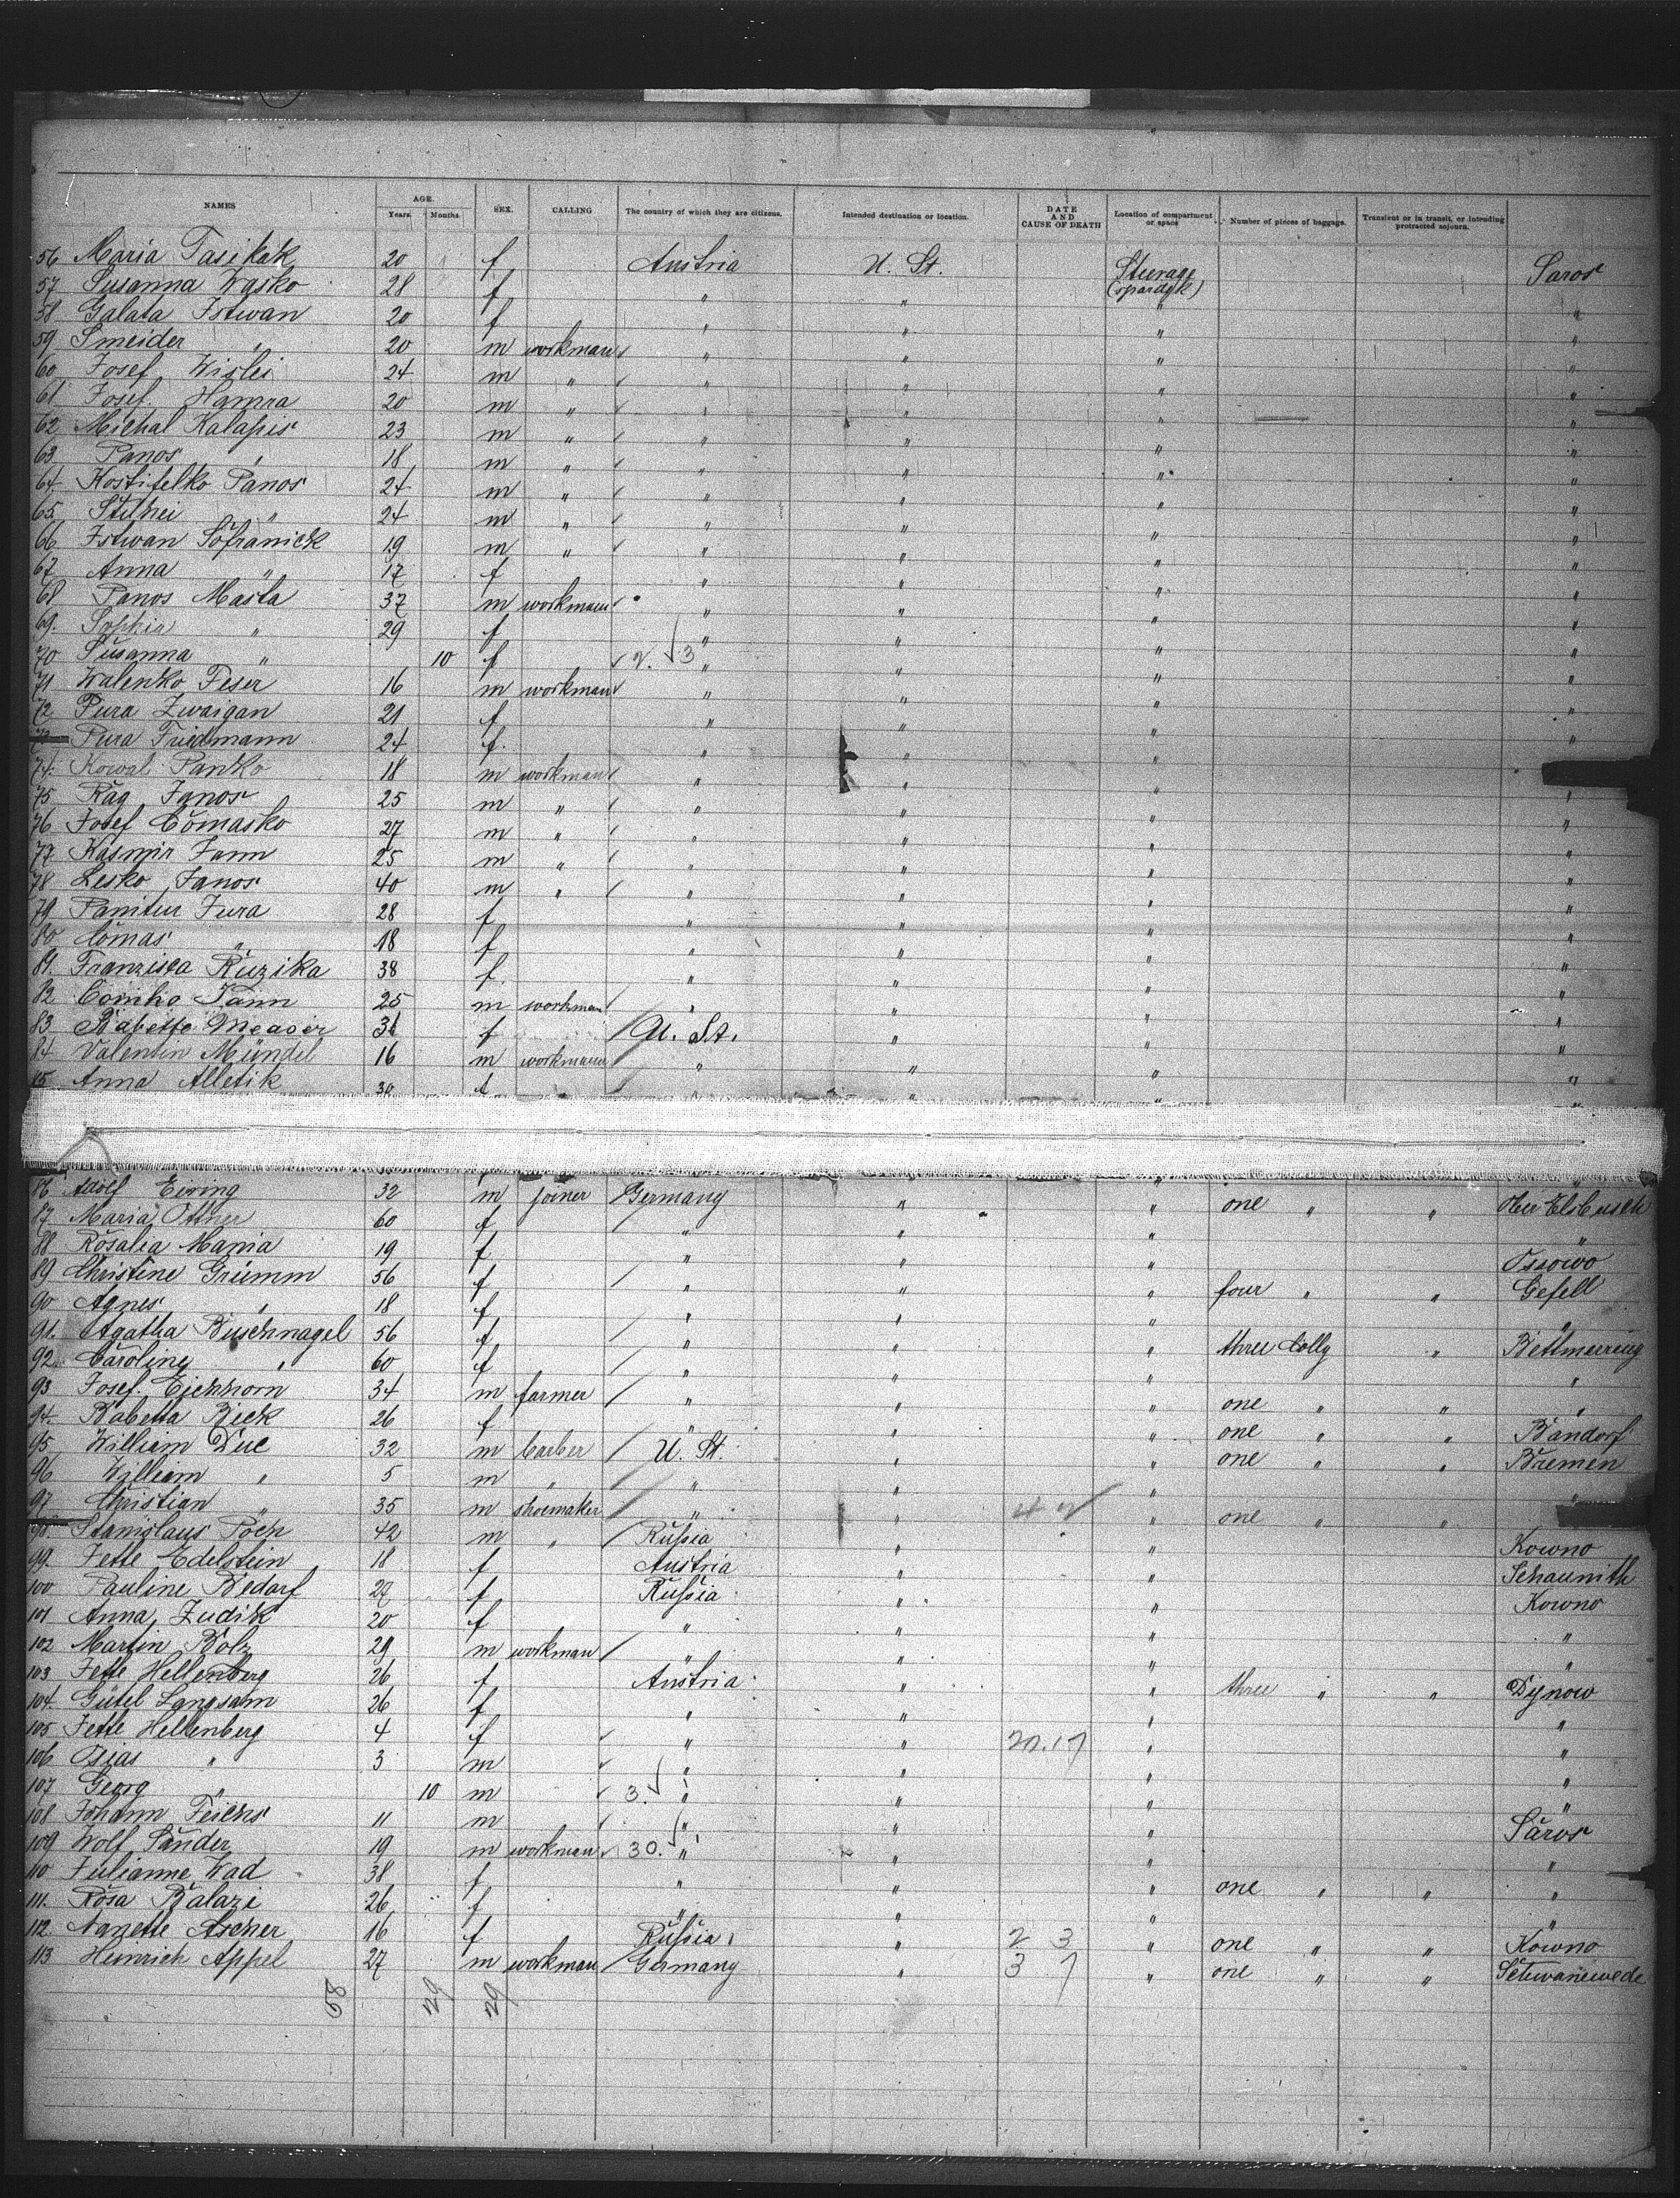 NAMES AGE. Years Months SEX. CALLING The country of which they are citizens. Intended destination or location. DATE AND CAUSE OF DEATH Location of compartment or space Number of pieces of baggage. Transient or in transit, or intending protracted sojourn.
56 Maria Tasikek 20 f Austria U. St. Steerage (spardek) Saros
57 Susanna Wasko 28 f " " " "
58 Galata Istwan 20 f " " " "
59 Smeider " 20 m workman " " " "
60 Josef Wislei 24 m " " " " "
61 Josef Hamra 20 m " " " " "
62 Michal Kalapis 23 m " " " " "
63 Panos " 18 m " " " " "
64 Kostifelko Panos 24 m " " " " "
65 Stihei " 24 m " " " " "
66 Istwan Sofranick 19 m " " " " "
67 Anna " 17 f " " " "
68 Panos Masla 37 m workman " " " "
69. Sophia " 29 f " " " "
70 Susanna " 10 f 2. 3 " " " "
71 Walenko Feser 16 m workman " " " "
72 Pura Zwaigan 21 f " " " "
73 Pura Friedmann 24 f. " " " "
74. Kowal Panko 18 m workman " " "
75 Rag Janos 25 m " " " " "
76 Josef Comasko 27 m " " " " "
77 Kasmir Jann 25 m " " " " "
78 Lesko Janos 40 m " " " " "
79 Panitur Jura 28 f " " " "
80 Comas " 18 f " " " "
81. Franzisca Ruzika 38 f. " " " "
82 Comko Jann 25 m workman " " " "
83. Babette 31 f U. St. " " "
84. Valentin Mündel 16 m workman " " " "
85 Anna Alletik 30 f " " " "
86 Adolf Eiring 32 m joiner Germany " " one " " Ober Elsbach
87 Maria Ottner 60 f " " " "
88 Rosalia Mania 19 f " " " Ossowo
89 Christine Grümm 56 f " " " four " " Gefell
90 Agnes " 18 f " " " "
91. Agatha Buschnagel 56 f " " " three Colly "
92. Caroline " 60 f " " " "
93 Josef Eichhorn 34 m farmer " " " one " " "
94. Babetta Bick 26 f " " " one " " Bandorf
95 William Due 32 m barber U. St. " " one " " Bremen
96 William " 5 m " " " " "
97 Christian " 35 m shoemaker " " " one " "
98. Stanislaus Poch 42 m " Russia " " Kowno
99. Jette Edelstein 18 f Austria " " Schaunith
100 Pauline Bedarf 27 f Russia " " Kowno
101 Anna Zudik 20 f " " " "
102 Martin Bolz 29 m workman " " " "
103 Jette Hellenberg 26 f Austria " " three " " Dynow
104. Gütel Langsam 26 f " " " "
105 Jette Hellenberg 4 f " " 20.17 " "
106 Osias " 3 m " " " "
107 Georg " 10 m 3. " " " "
108 Johann Feichs 11 m " " " Saros
109 Wolf Sander 19 m workman 30. " " " "
110 Julianne Wad 38 f " " " one " " "
111. Rosa Balazi 26 f " " " "
112. Nanette Ascher 16 f Russia " 2 3 " one " " Kowno
113 Heinrich Appel 27 m workman Germany " 3 7 " one " " Schwanewede
58 29 29